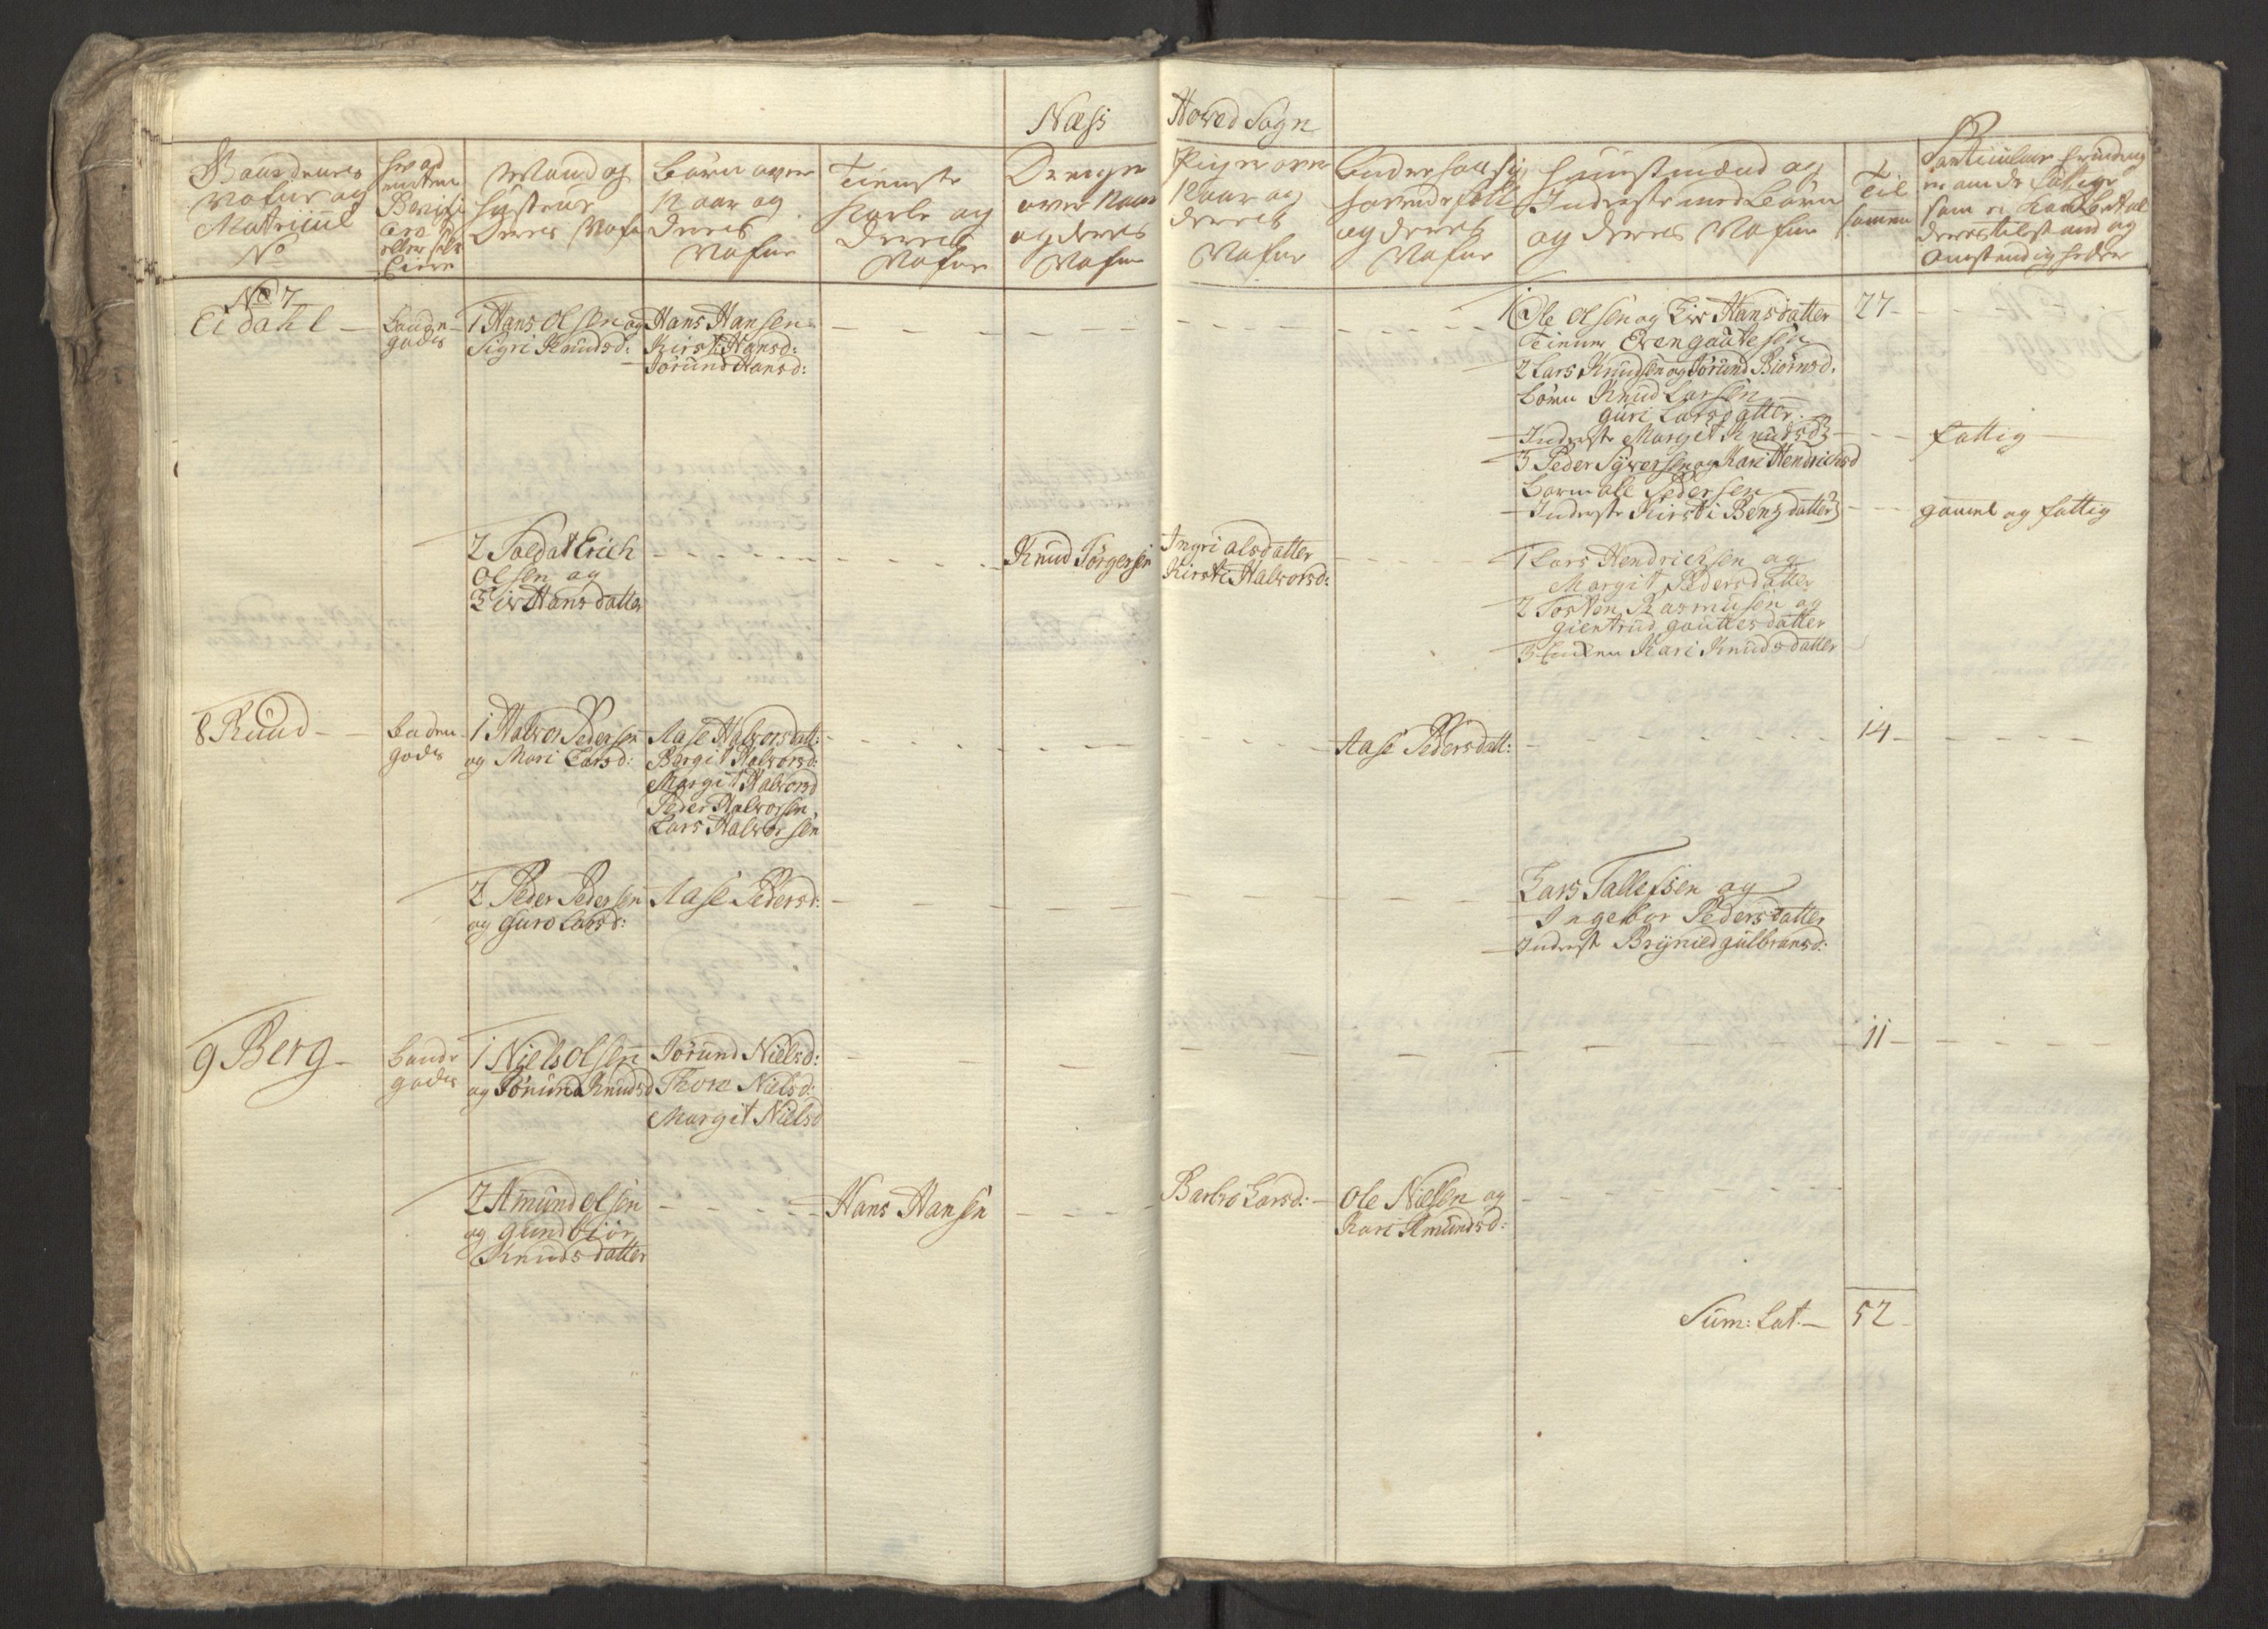 Næss Hoved Sogn
Gaardenes
Nafne og
Matricul
No
Mand og
Hustrue
Deres Nafne
Børn over
12 aar og
Deres
Nafne
Tieneste
Karle og
Deres
Nafne
Drenge
over 12 aar
og deres
Nafne
Piger over
12 aar og
Deres
Nafne
og Deres
Nafne
Huusmænd og
Inderste med Børn
og deres Nafne
Til
sammen
No 7
Eidahl
Bønder
gods
1 Hans Olsen og
Sigri Knudsd:
Hans Hansen
Kirsti Hansd:
Jørund Hansd:
1 Ole Olsen og Liv Hansdatter
Tiener Even Gautesen
2 Lars Knudsen og Jørund Biørnsd:
Børn Knud Larsen
Guri Larsdatter
Inderste Margit Knudsd
3 Peder Syversen og Kari Hendrichsd
Barn Ole Pedersen
Inderste Kirsti Bengsdatter
27
fattig
gammel og fattig
2 Soldat Erich
Olsen og
Liv Hansdatter
Knud Jørgensen
Ingri Olsdatter
Kirsti Halvorsd:
1 Lars Hendrichsen og
Margit Pedersdatter
2 Torsten Rasmusen og
Giertrud Gauttesdatter
3 Enken Kari Knudsdatter
8 Ruud
Bønder
gods
1 Halvor Pedersen
og Mari Larsd:
Aase Halvorsdatt:
Bergit Halvorsd:
Margit Halvorsd
Peder Halvorsen
Lars Halvorsen
Aase Pedersdatt:
14
2 Peder Pedersen
og Guro Larsd:
Aase Pedersd:
Lars Tallefsen og
Ingebor Pedersdatter
Inderste Brynild Gulbransd:
9 Berg
Bønder
gods
1 Niels Olsen
og Jørund Knudsd
Jørund Nielsd:
Thore Nielsd:
Margit Nielsd
11
2 Amund Olsen
og Gundbiør
Knudsdatter
Hans Hansen
Barbro Larsd:
Ole Nielsen og
Kari Amundsd:
Sum: Lat. 52